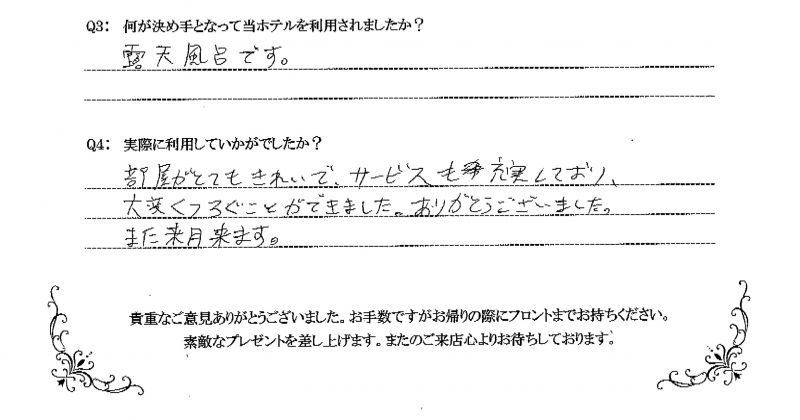 Q3: 何が決め手となって当ホテルを利用されましたか?
露天風呂です。
Q4: 実際に利用していかがでしたか?
部屋がとてもきれいで、サービスも充実しており、
大変くつろぐことができました。ありがとうございました。
また来月来ます。
貴重なご意見ありがとうございました。お手数ですがお帰りの際にフロントまでお持ちください。
素敵なプレゼントを差し上げます。またのご来店心よりお待ちしております。